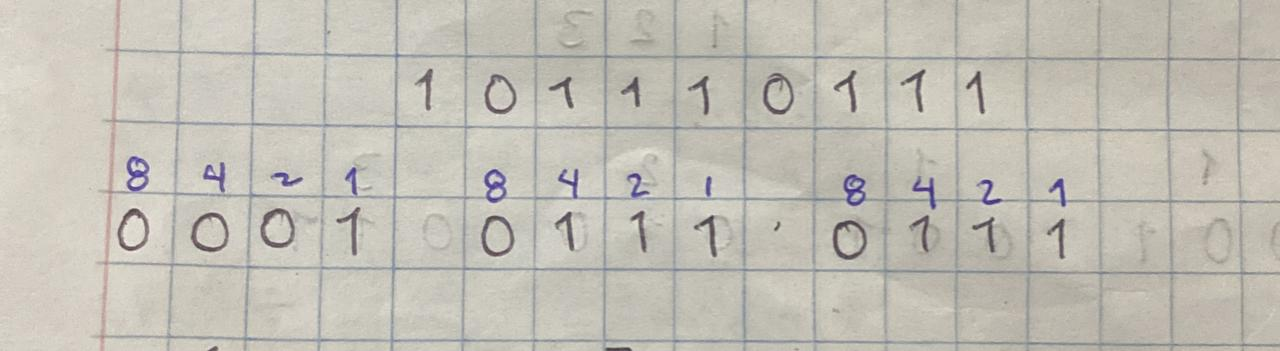 1 0 1 1 1 0 1 1 1
8 4 2 1 8 4 2 1 8 4 2 1
0 0 0 1 0 1 1 1 0 1 1 1